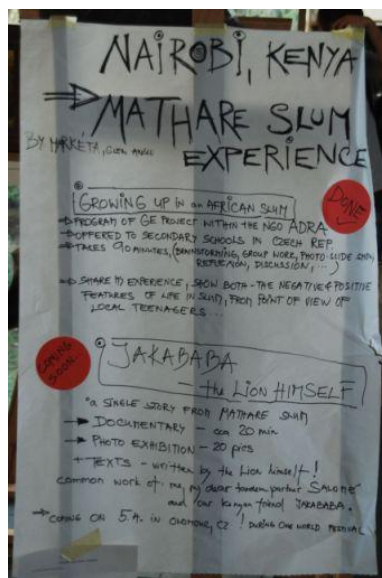 NAIROBI, KENYA
⇒ MATHARE SLUM
BY MARKÉTA,
EXPERIENCE
GROWING UP in an AFRICAN SLUM
DONE
→ PROGRAM OF GE PROJECT WITHIN THE NGO ADRA
→ OFFERED TO SECONDARY SCHOOLS IN CZECH REP.
→ TAKES 90 MINUTES, (BRAINSTORMING, GROUP WORK, PHOTO-SLIDE SHOW,
REFLEXION, DISCUSSION, ...)
→ SHARE MY EXPERIENCE, SHOW BOTH - THE NEGATIVE & POSITIVE
FEATURES OF LIFE IN SLUM, FROM POINT OF VIEW OF
LOCAL TEENAGERS...
COMING
SOON...
JAKABABA
- the LION HIMSELF
"a SINGLE STORY FROM MATHARE SLUM
→ DOCUMENTARY - cca 20 min
→ PHOTO EXHIBITION - 20 pics
+ TEXTS - written by the Lion himself!
common work of me, my dear tandem partner SALOME
and our kenyan friend JAKABABA.
→ COMING ON 5.4. IN OLOMOUC, CZ! DURING ONE WORLD FESTIVAL